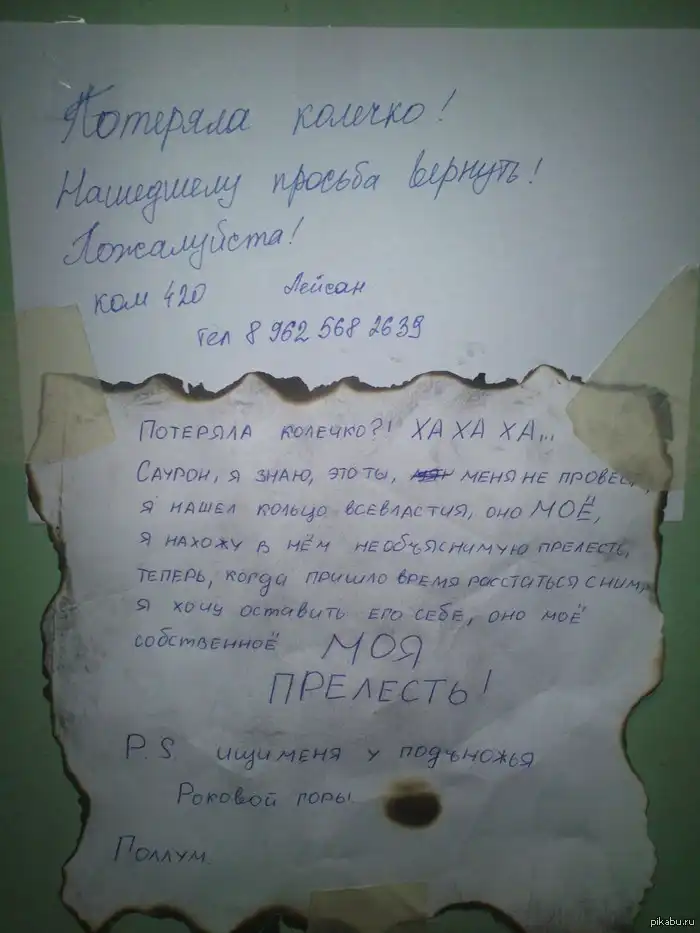 Потеряла колечко!
Нашедшему просьба вернуть!
Пожалуйста!
ком 420 Лейсан
тел 8 962 568 2639
ПОТЕРЯЛА КОЛЕЧКО?! ХА ХА ХА...
САУРОН, Я ЗНАЮ, ЭТО ТЫ, МЕНЯ НЕ ПРОВЕСТ
Я НАШЕЛ КОЛЬЦО ВСЕВЛАСТИЯ, ОНО МОЁ,
Я НАХОЖУ В НЁМ НЕОБЪЯСНИМУЮ ПРЕЛЕСТЬ,
ТЕПЕРЬ, КОГДА ПРИШЛО ВРЕМЯ РАССТАТЬСЯ С НИМ,
Я ХОЧУ ОСТАВИТЬ ЕГО СЕБЕ, ОНО МОЁ
СОБСТВЕННОЁ МОЯ
ПРЕЛЕСТЬ!
P.S. ИЩИ МЕНЯ У ПОДЪНОЖЬЯ
РОКОВОЙ ГОРЫ.
ГОЛЛУМ.
pikabu.ru